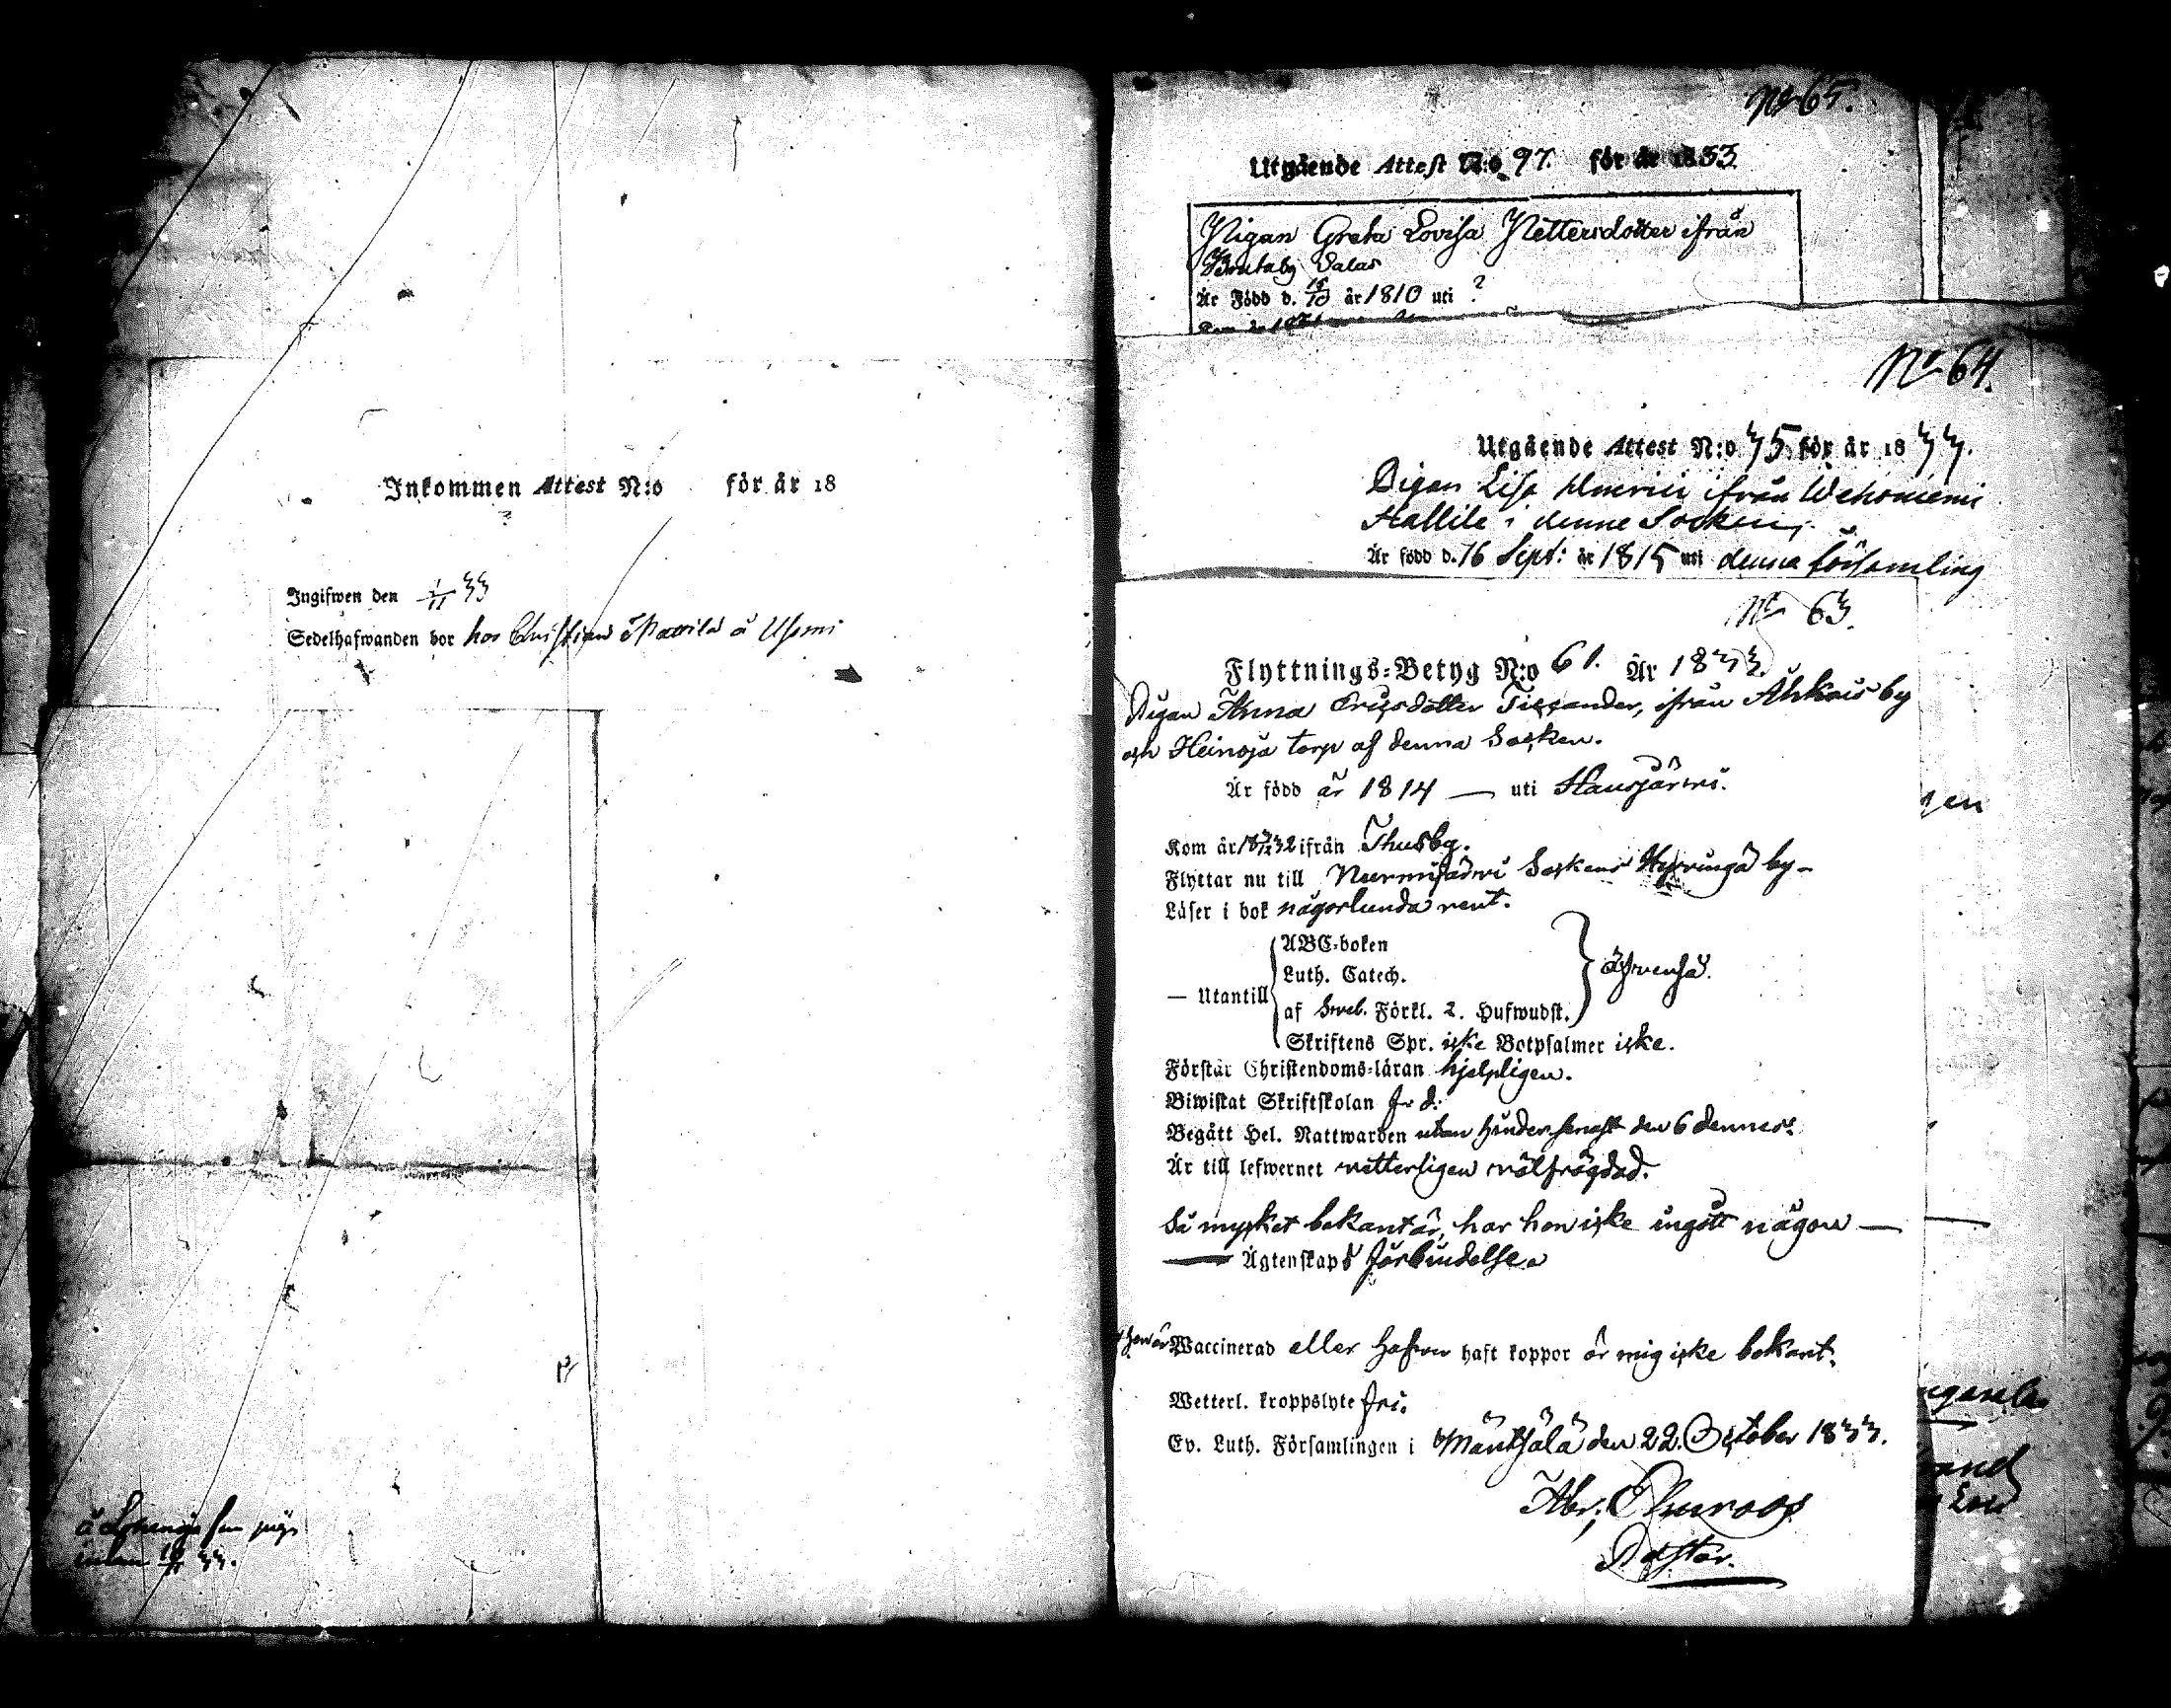 Inkommen Attest N:o för år 18
Ingifwen den 1/11 33
Sedelhafwanden bor hos Christian Mattila å Usmi
å
33.
No 65.
Utgående Attest N:o 97. för år 1833
Pigan Greta Lovisa Pettersdotter ifrån
Salas
Är Född d. 15/10 år 1810 uti ?
No 64.
Utgående Attest N:o 35 för år 1833.
Pigan Lisa ifrån Wehoniemi
Hallile i denne Socken,
Är född d. 16 Sept: år 1815 uti denna församling
No 63.
Flyttnings-Betyg N:o 61. År 1833.
Pigan Anna Ericsdotter Tissander, ifrån Ahkois by
och Heinoja torp af denna Socken.
Är född år 1814 — uti Hausjärwi.
Kom år ifrån Thusby.
Flyttar nu till Nurmijärwi Sockens Hyvingä by-
Läser i bok någorlunda rent.
— Utantill
ABC-boken
Luth. Catech.
af Sveb. Förkl. 2. Hufwudst.
äfvenså.
Skriftens Spr. icke Botpsalmer icke.
Förstår Christendoms-läran hjelpligen.
Biwistat Skriftskolan
Begått Hel. Nattwarden utan hinder senast den 6 dennes.
Är till lefwernet vetterligen välfrägdad.
Så mycket bekant är, har hon icke ingått någon —
— Ägtenskaps förbindelse.
Waccinerad eller hafver haft koppor är mig icke bekant.
Wetterl. kroppslyte fri.
Ev. Luth. Församlingen i Mäntsälä den 22. October 1833.
Abr:
Pastor.